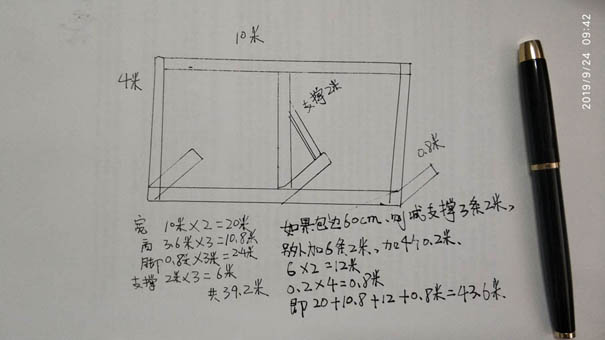 10米
4米
支撑2米
0.8米
宽 10米×2=20米
高 3.6米×3=10.8米
脚 0.8米×3米=2.4米
支撑 2米×3=6米
共39.2米
如果包边60cm、则减支撑3条2米、
另外加6条2米、加4个0.2米、
6×2=12米
0.2×4=0.8米
即20+10.8+12+0.8米=43.6米
2019/9/24 09:42